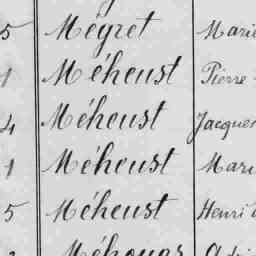 5 Mégret Marie
1 Méheust Pierre
4 Méheust Jacques
1 Méheust Mari
5 Méheust Henri
Méhouas